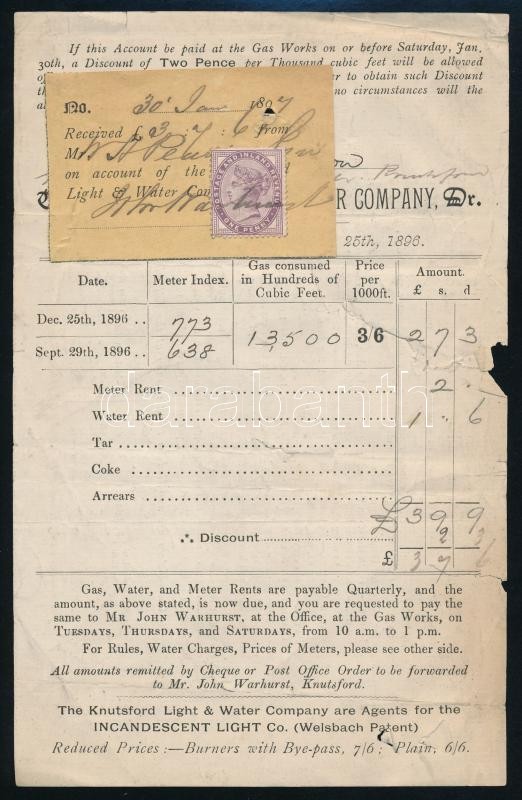 If this Account be paid at the Gas Works on or before Saturday, Jan.
30th, a Discount of Two Pence per Thousand cubic feet will be allowed
er to obtain such Discount
no circumstances will the
No. 30 Jan 1897
Received £ 3 : 7 : 6 from
M
on account of the
Light & Water Com
John Warhurst
POSTAGE AND INLAND REVENUE
ONE PENNY
R COMPANY, Dr.
25th, 1896.
Date. Meter Index. Gas consumed in Hundreds of Cubic Feet. Price per 1000ft. Amount. £ s. d
Dec. 25th, 1896 .. 773
13,500 3/6 2 7 3
Sept. 29th, 1896 .. 638
Meter Rent 2 "
Water Rent 1 " 6
Tar
Coke
Arrears
£ 3 9 9
∴ Discount 2 3
£ 3 7 6
darabanth
Gas, Water, and Meter Rents are payable Quarterly, and the
amount, as above stated, is now due, and you are requested to pay the
same to Mr John Warhurst, at the Office, at the Gas Works, on
Tuesdays, Thursdays, and Saturdays, from 10 a.m. to 1 p.m.
For Rules, Water Charges, Prices of Meters, please see other side.
All amounts remitted by Cheque or Post Office Order to be forwarded
to Mr. John Warhurst, Knutsford.
The Knutsford Light & Water Company are Agents for the
INCANDESCENT LIGHT Co. (Welsbach Patent)
Reduced Prices:—Burners with Bye-pass, 7/6; Plain, 6/6.